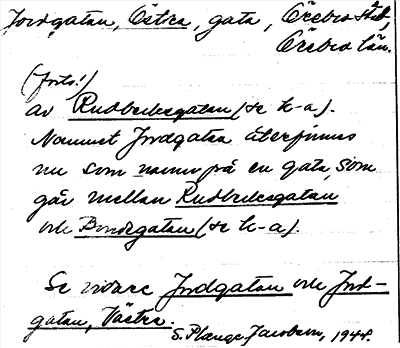 Jordgatan, Östra, gata, Örebro stad,
Örebro län.
(forts.!)
av Rudbecksgatan (se h-a).
Namnet Jordgatan återfinnes
nu som namn på en gata, som
går mellan Rudbecksgatan
och Bondegatan (se h-a).
Se vidare Jordgatan och Jord-
gatan, Västra.
S. Plange Jacobson, 1944.